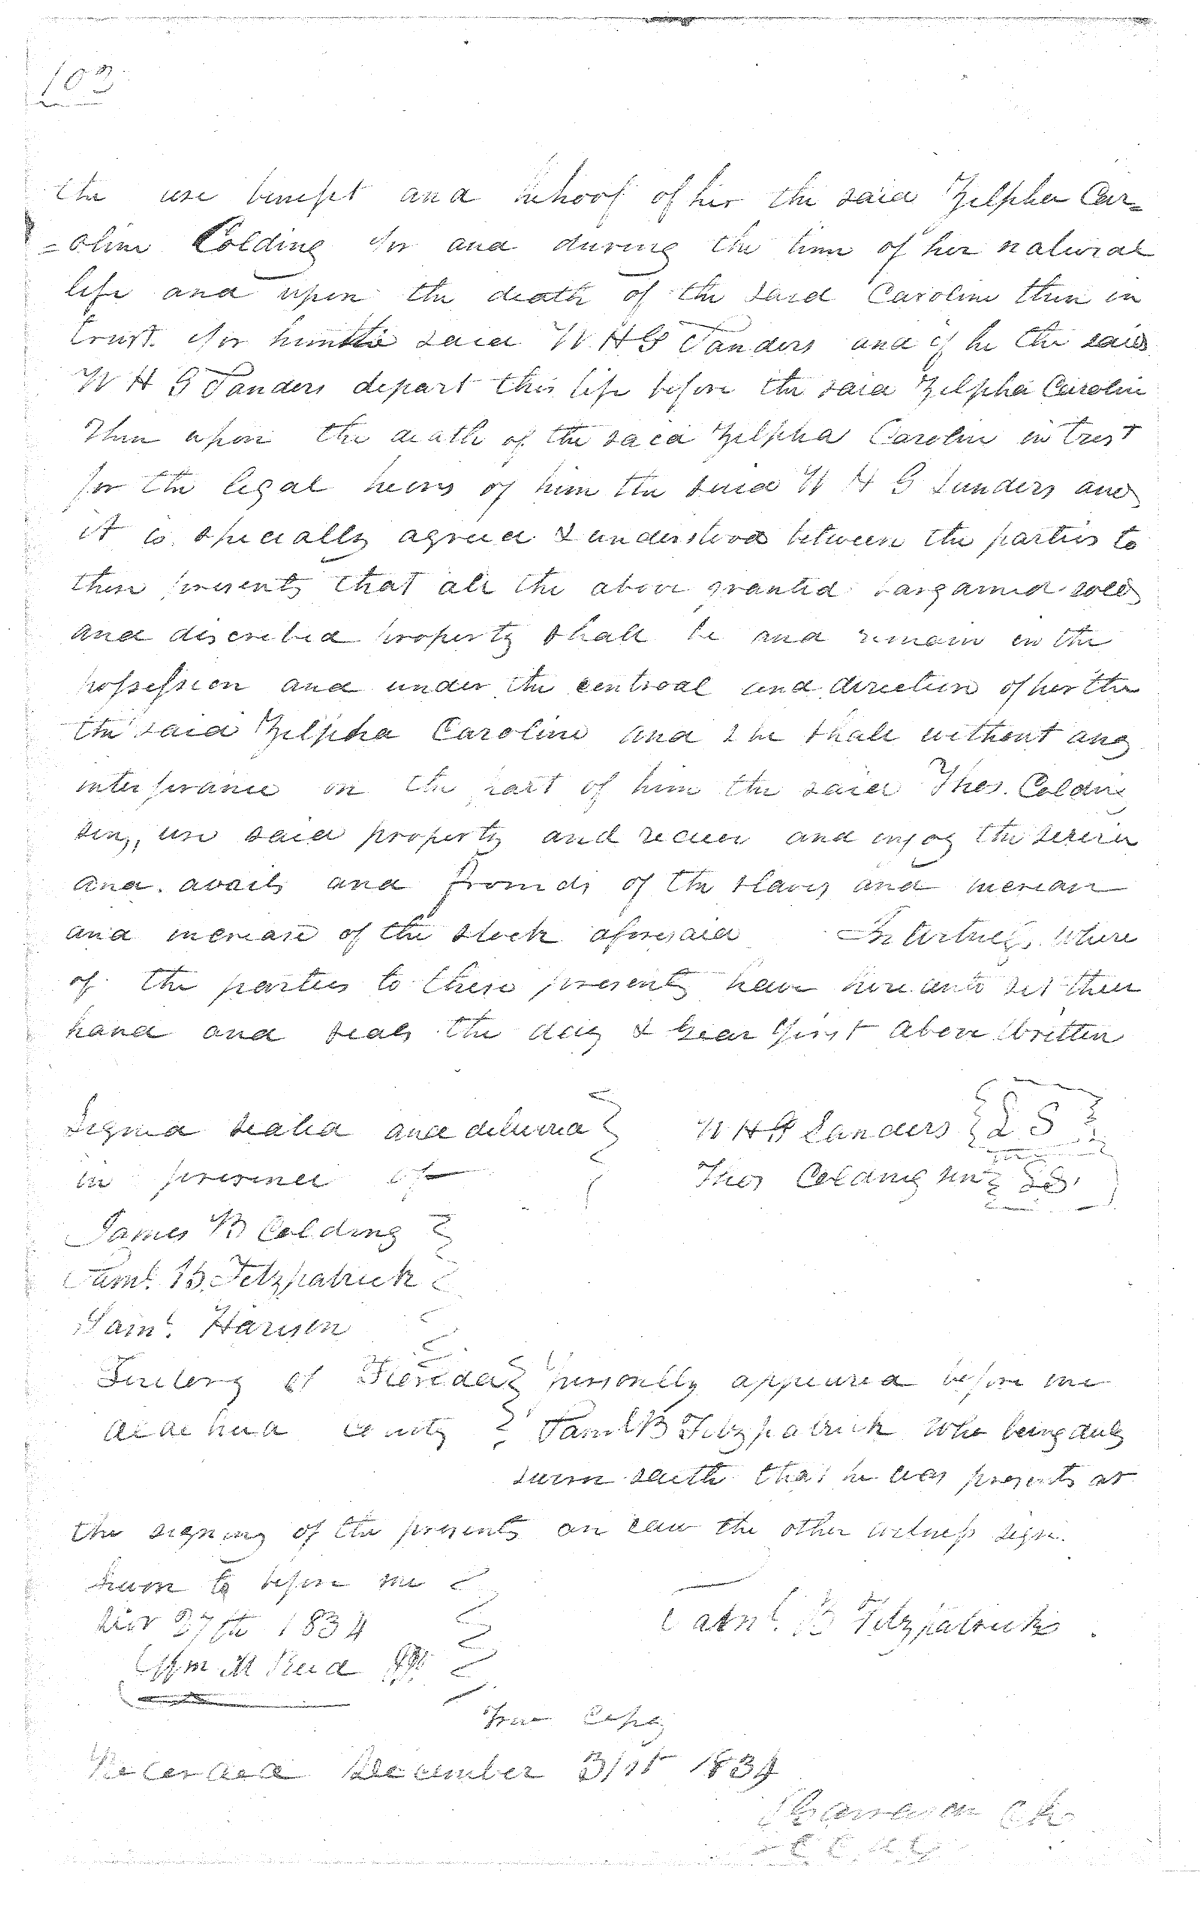 103
the use benefit and behoof of her the said Zelpha Car=
=oline Colding for and during the time of her natural
life and upon the death of the said Caroline then in
trust for him the said W H G Sanders and if he the said
W H G Sanders depart this life before the said Zelpha Caroline
Then upon the death of the said Zelpha Caroline in trust
for the legal heirs of him the said W H G Sanders and
it is specially agreed & understood between the parties to
these presents that all the above granted bargained sold
and discribed property shall be and remain in the
possession and under the controal and direction of her the
the said Zelpha Caroline and she shall without any
interferance on the part of him the said Thos. Colding
senr, use said property and receive and enjoy the service
and avails and proceeds of the slaves and increase
and increase of the stock aforesaid In witness where
of the parties to these presents have hereunto set their
hand and seals the day & year first above written
Signed sealed and delivered W H G Sanders L S
in presence of Thos Colding senr LS
James B Colding
Saml. B. Fitzpatrick
Saml. Harison
Teritory of Florida Personally appeared before me
Alachua County Saml B Fitzpatrick who being duly
sworn saith that he was presents at
the signing of the presents an saw the other witness sign.
Sworn to before me
Nov 27th 1834 Saml. B Fitzpatrick
Wm M Reid JP
True Copy
Recorded December 31st 1834
Clk